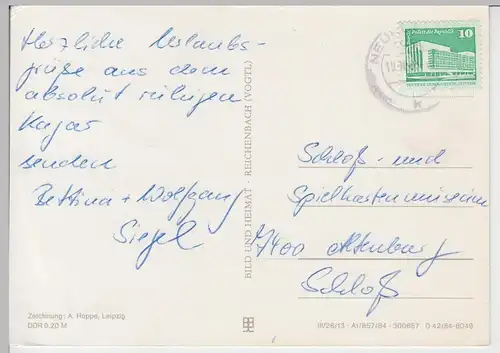 Herzliche Urlaubs-
grüße aus dem
absolut ruhigen
Kagar
senden
Bettina + Wolfgang
Siegel
Zeichnung: A. Hoppe, Leipzig
DDR 0.20 M
BILD UND HEIMAT REICHENBACH (VOGTL)
10
NEU
k
Schloß- und
Spielkartenmuseum
7400 Altenburg
Schloß
III/26/13 · A1/857/84 · 300657 0 42/84-6046